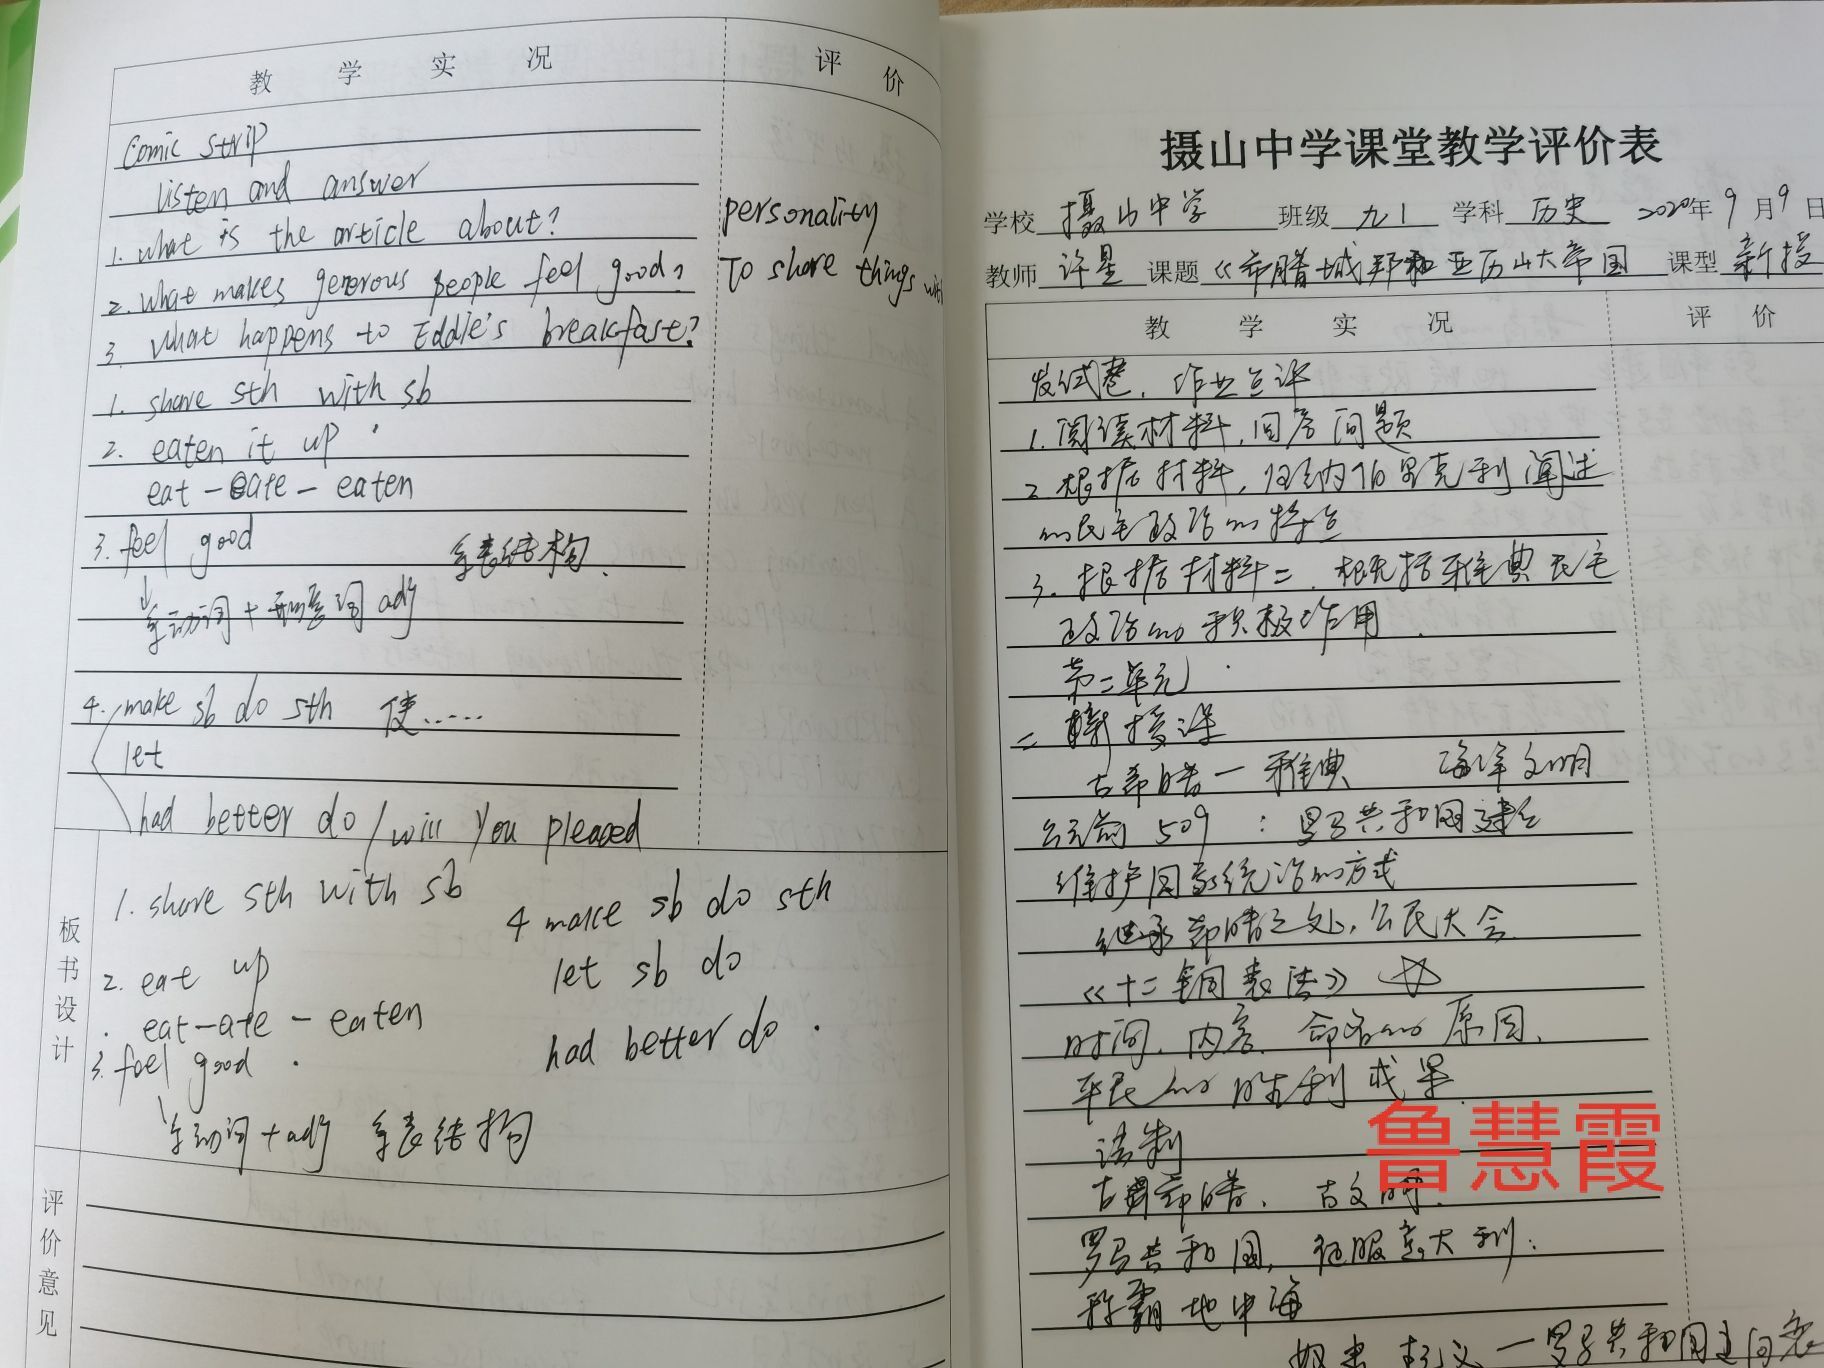 教 学 实 况
评 价
Comic strip
listen and answer
1. what is the article about?
2. what makes generous people feel good?
3. what happens to Eddie's breakfast?
1. share sth with sb
2. eaten it up
eat - ate - eaten
3. feel good 系表结构
系动词 + 形容词 adj
4. make sb do sth 使……
let
had better do / will you pleased
personality
To share things with
板书设计
1. share sth with sb
2. eat up
eat - ate - eaten
3. feel good
系动词 + adj 系表结构
4 make sb do sth
let sb do
had better do
评价意见
摄山中学课堂教学评价表
学校 摄山中学 班级 九1 学科 历史 2020年9月9日
教师 许星 课题 《希腊城邦和亚历山大帝国 课型 新授
教 学 实 况
评 价
发试卷, 作业点评
1. 阅读材料, 回答问题
2. 根据材料, 归纳伯里克利阐述
的民主政治的特点
3. 根据材料二, 概括雅典民主
政治的积极作用
第二单元
二 新授课
古希腊一雅典 海洋文明
公元前 509 : 罗马共和国建立
维护国家统治的方式
继承希腊之处, 公民大会
《十二铜表法》
时间、内容、命名的原因、
平民的胜利成果
法制
古希腊、古文明
罗马共和国, 征服意大利:
称霸地中海
一罗马共和国走向衰
鲁慧霞